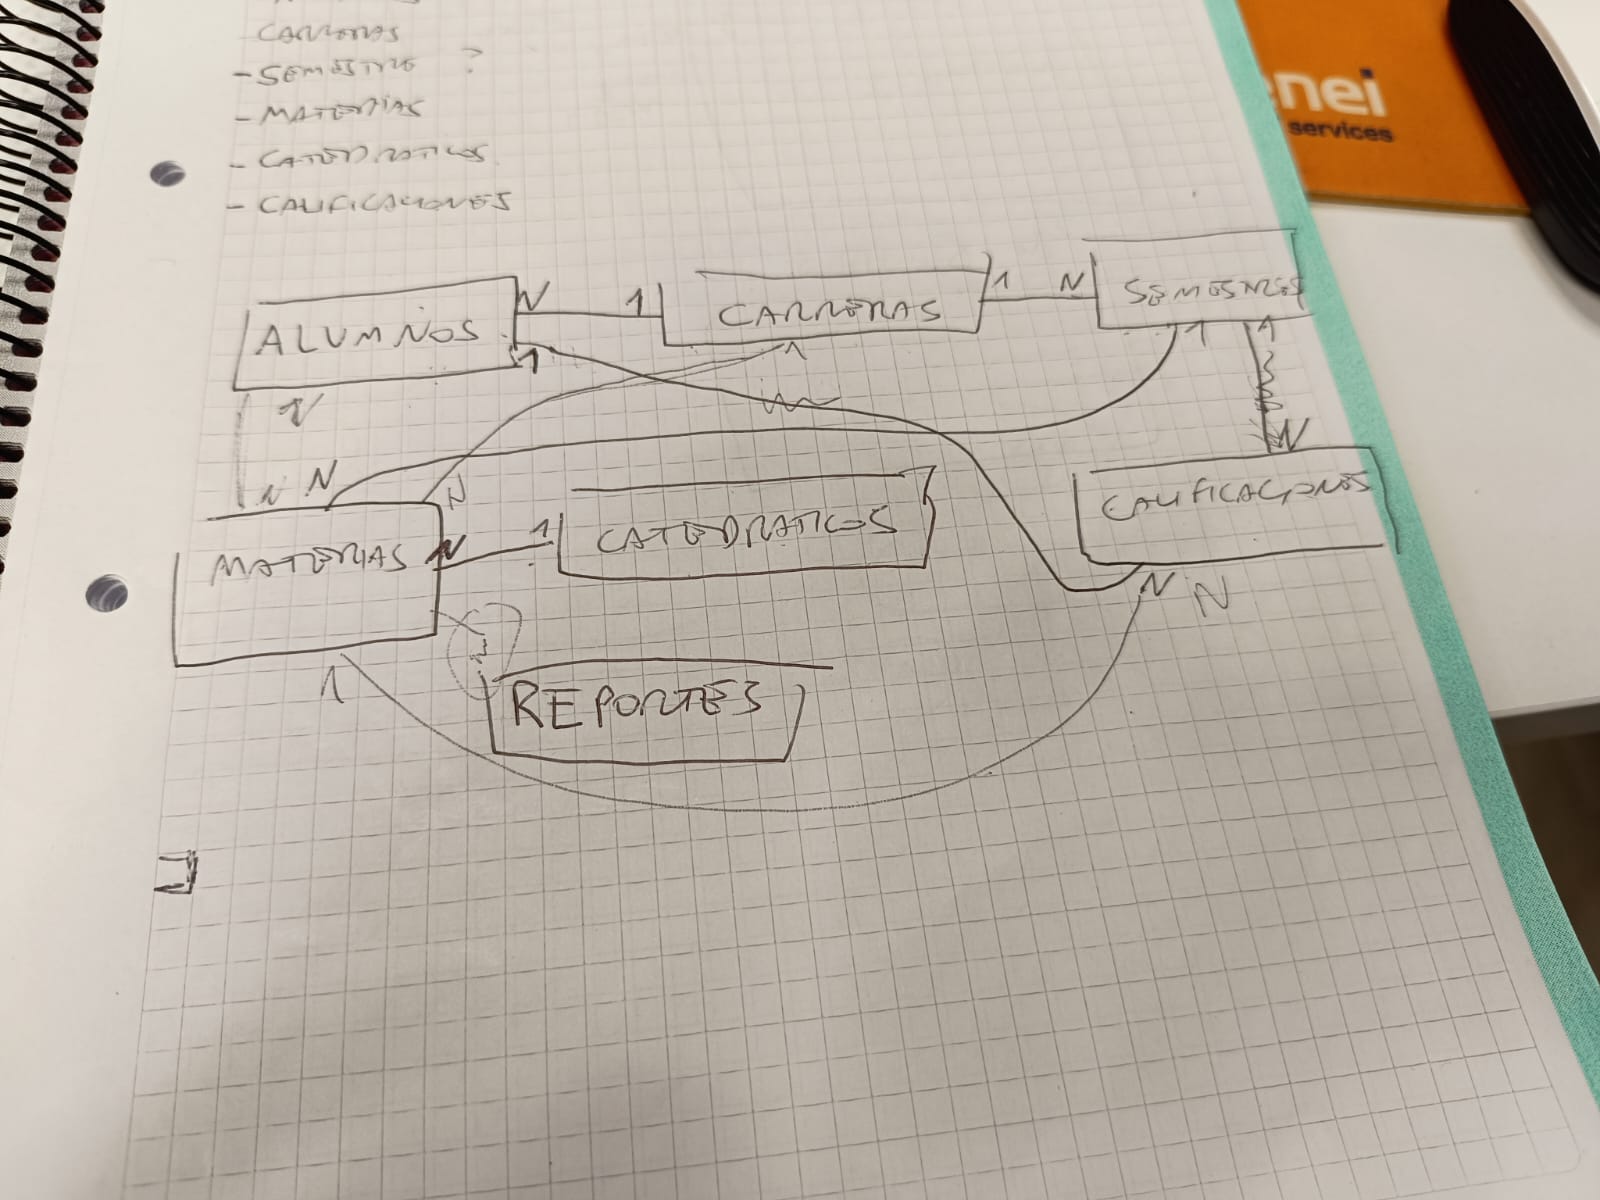 CARRERAS
- SEMESTRE ?
- MATERIAS
- CATEDRATICOS
- CALIFICACIONES
enei
services
ALUMNOS N 1 CARRERAS 1 N SEMESTRES
1 1 1 1
N
N N N N
MATERIAS N 1 CATEDRATICOS CALIFICACIONES
N N
1
REPORTES